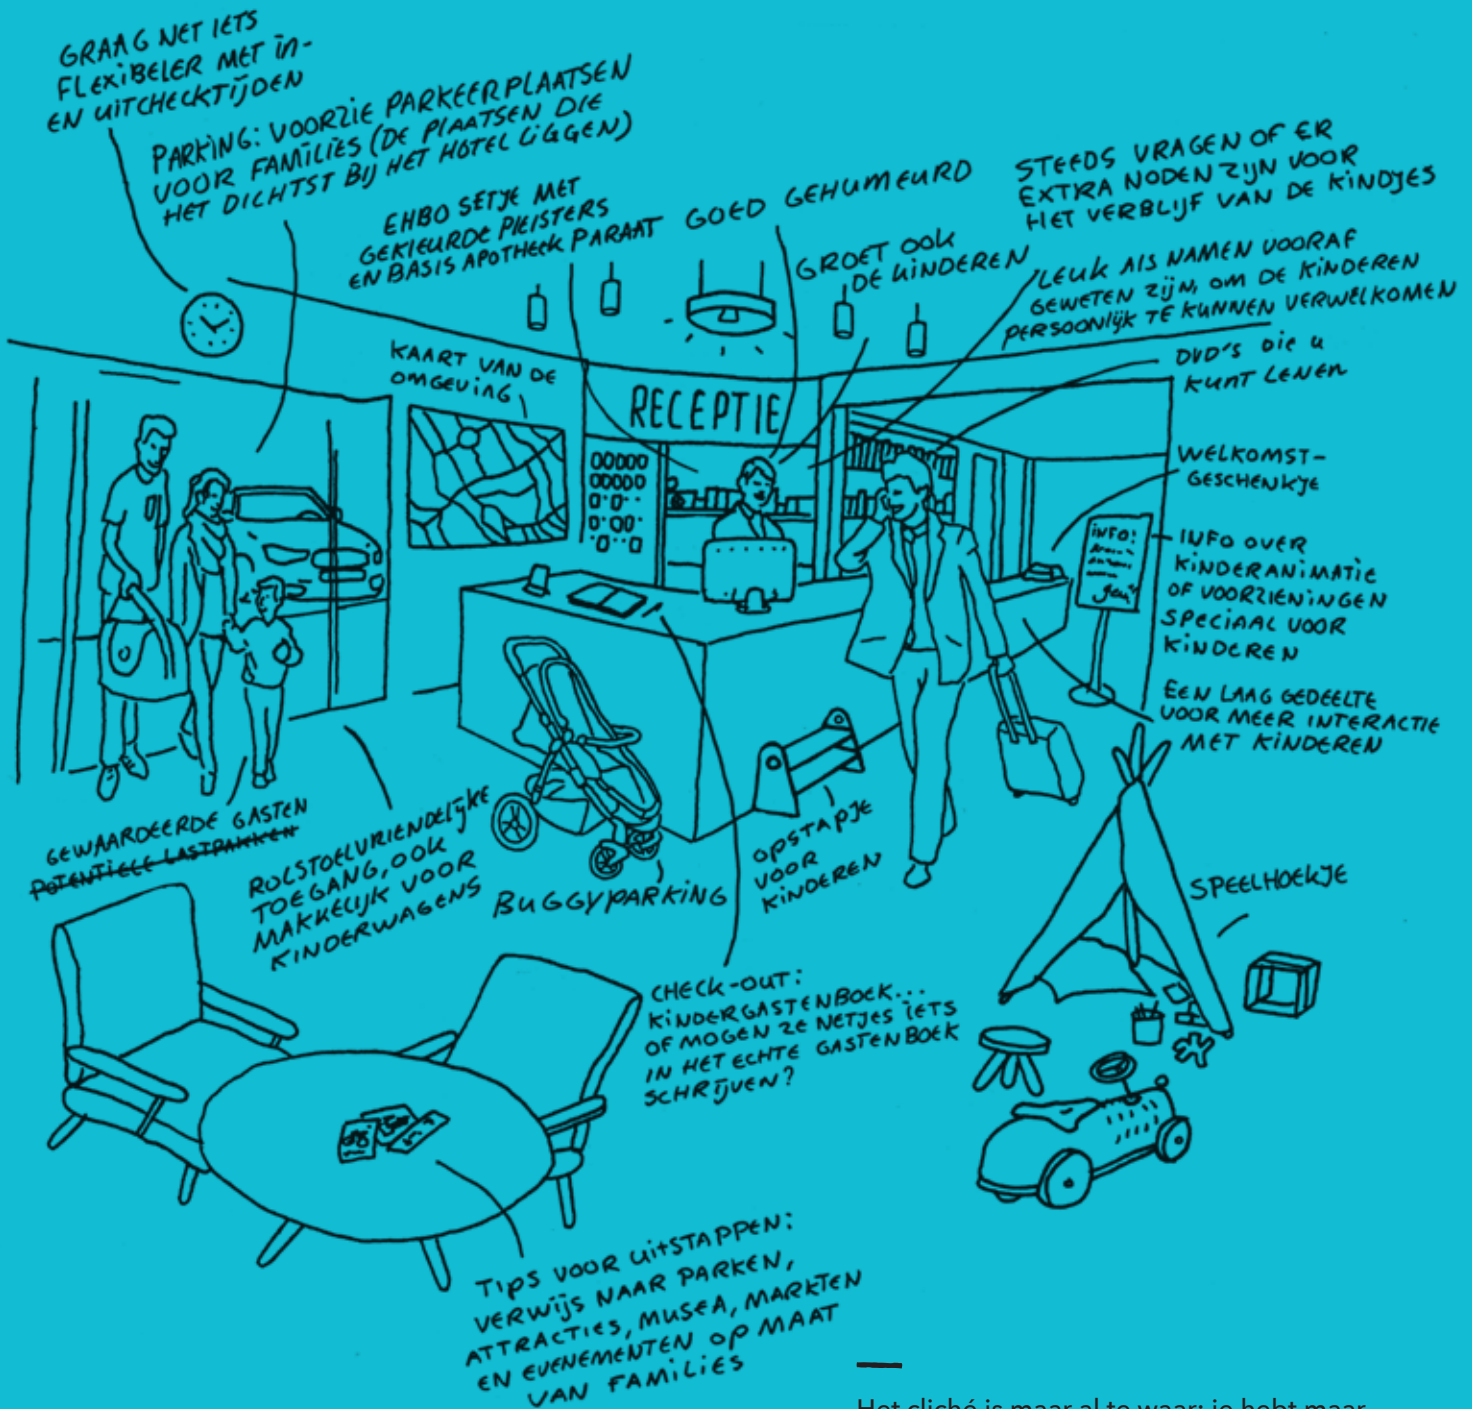 GRAAG NET IETS
FLEXIBELER MET IN-
EN UITCHECKTIJDEN
PARKING: VOORZIE PARKEERPLAATSEN
VOOR FAMILIES (DE PLAATSEN DIE
HET DICHTST BIJ HET HOTEL LIGGEN)
EHBO SETJE MET
GEKLEURDE PLEISTERS
EN BASIS APOTHEEK PARAAT
GOED GEHUMEURD
GROET OOK
DE KINDEREN
STEEDS VRAGEN OF ER
EXTRA NODEN ZIJN VOOR
HET VERBLIJF VAN DE KINDJES
LEUK ALS NAMEN VOORAF
GEWETEN ZIJN, OM DE KINDEREN
PERSOONLIJK TE KUNNEN VERWELKOMEN
DVD'S DIE U
KUNT LENEN
KAART VAN DE
OMGEVING
RECEPTIE
WELKOMST-
GESCHENKJE
INFO:
INFO OVER
KINDERANIMATIE
OF VOORZIENINGEN
SPECIAAL VOOR
KINDEREN
EEN LAAG GEDEELTE
VOOR MEER INTERACTIE
MET KINDEREN
GEWAARDEERDE GASTEN
POTENTIELE LASTPAKKEN
ROLSTOELVRIENDELIJKE
TOEGANG, OOK
MAKKELIJK VOOR
KINDERWAGENS
BUGGYPARKING
OPSTAPJE
VOOR
KINDEREN
SPEELHOEKJE
CHECK-OUT:
KINDERGASTENBOEK...
OF MOGEN ZE NETJES IETS
IN HET ECHTE GASTENBOEK
SCHRIJVEN?
TIPS VOOR UITSTAPPEN:
VERWIJS NAAR PARKEN,
ATTRACTIES, MUSEA, MARKTEN
EN EVENEMENTEN OP MAAT
VAN FAMILIES
Het cliché is maar al te waar: je hebt maar